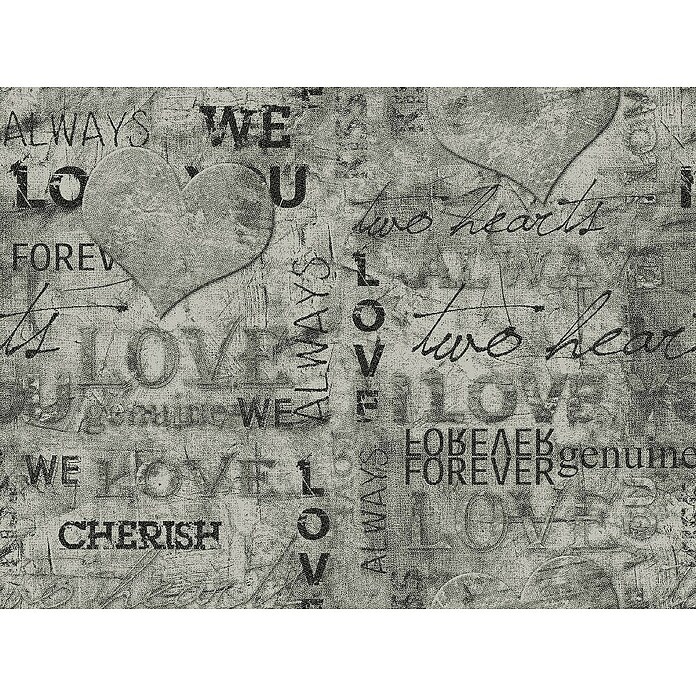 ALWAYS
WE
KISS
LO
YOU
two hearts
FOREV
ALWAYS
ALWAYS
LOVE
ts
LOVE
two hear
genuine
WE
I LOVE YO
FOREVER
FOREVER
genuine
WE
LOVE
ALWAYS
LOVE
LOVE
YOU
CHERISH